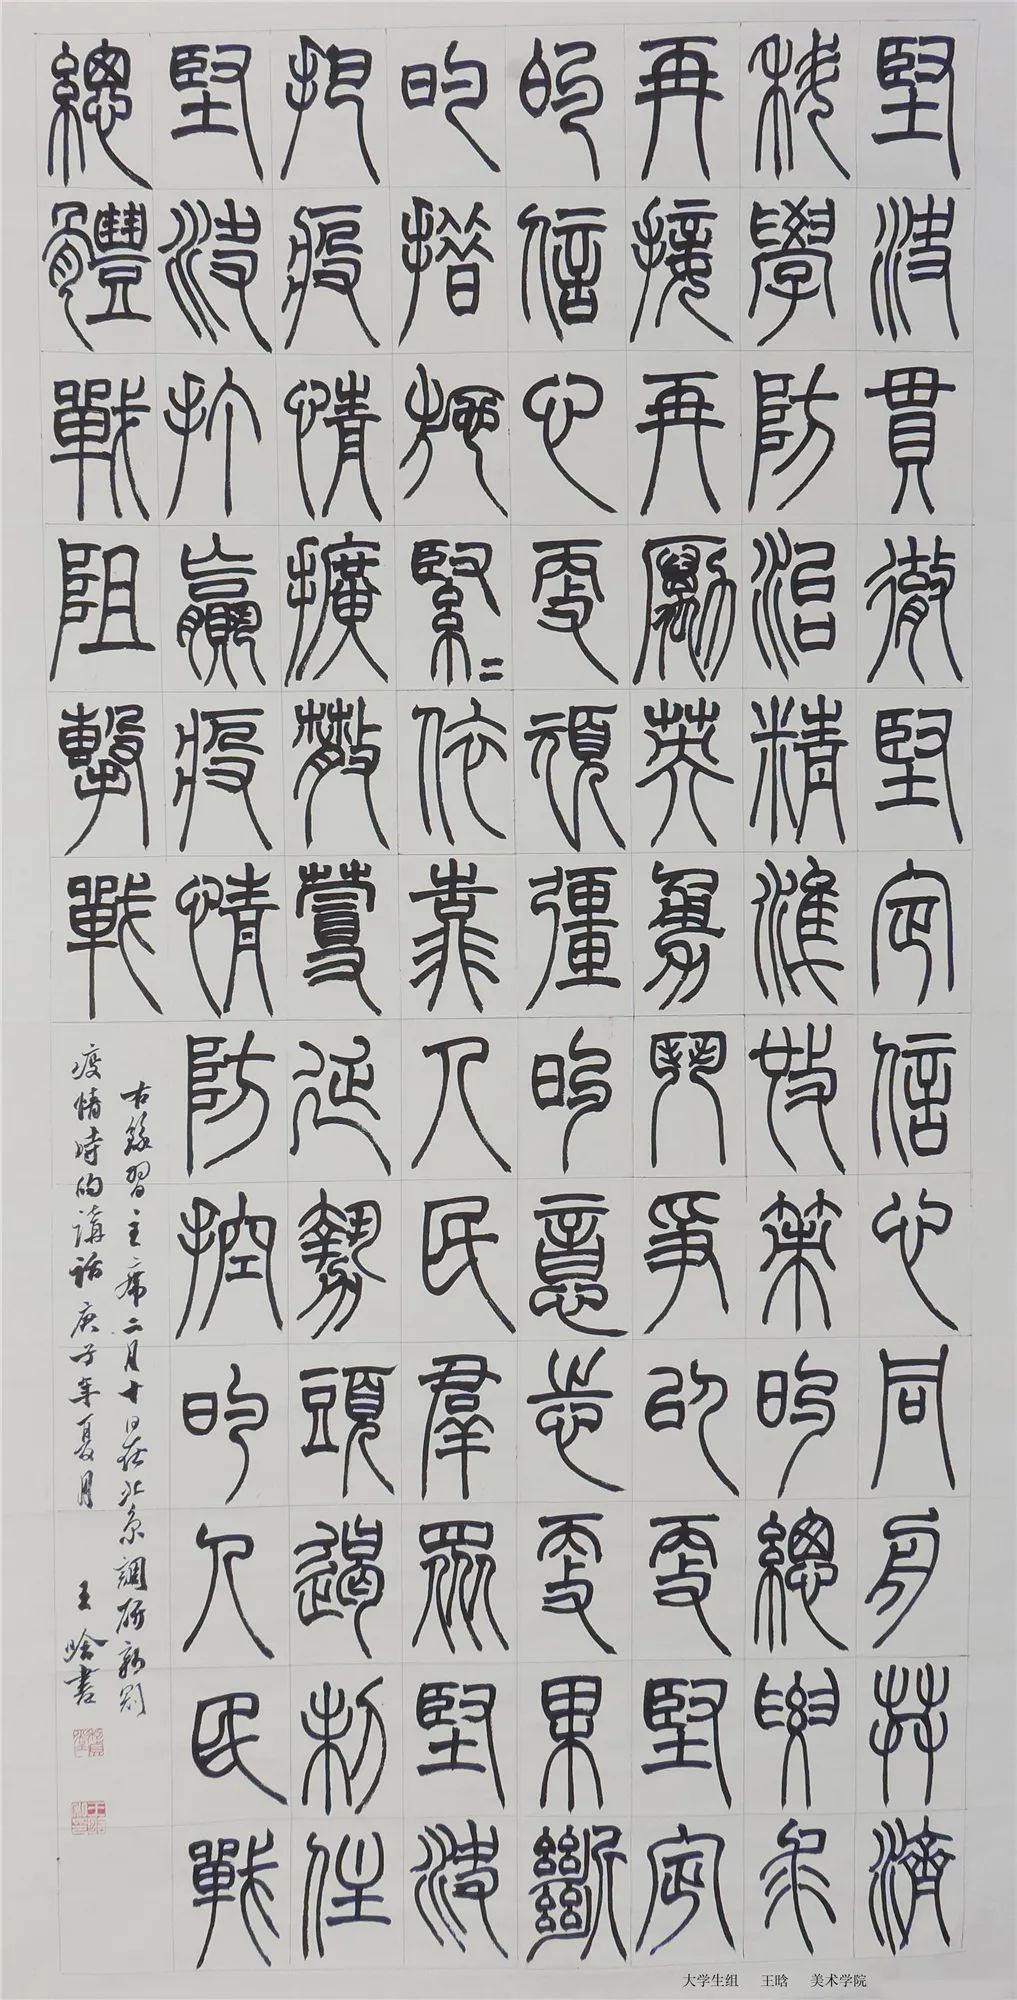 堅決貫徹堅定信心同舟共濟
科學防治精準施策的總要求
再接再勵英勇鬥爭以更堅定
的信心更頑彊的意志更果斷
的措施緊〻依靠人民羣眾堅決
把疫情擴散蔓延勢頭遏制住
堅決打贏疫情防控的人民戰
總體戰阻擊戰
右錄習主席二月十日在北京調研新冠
疫情時的講話庚子年夏月 王晗書
大学生组 王晗 美术学院